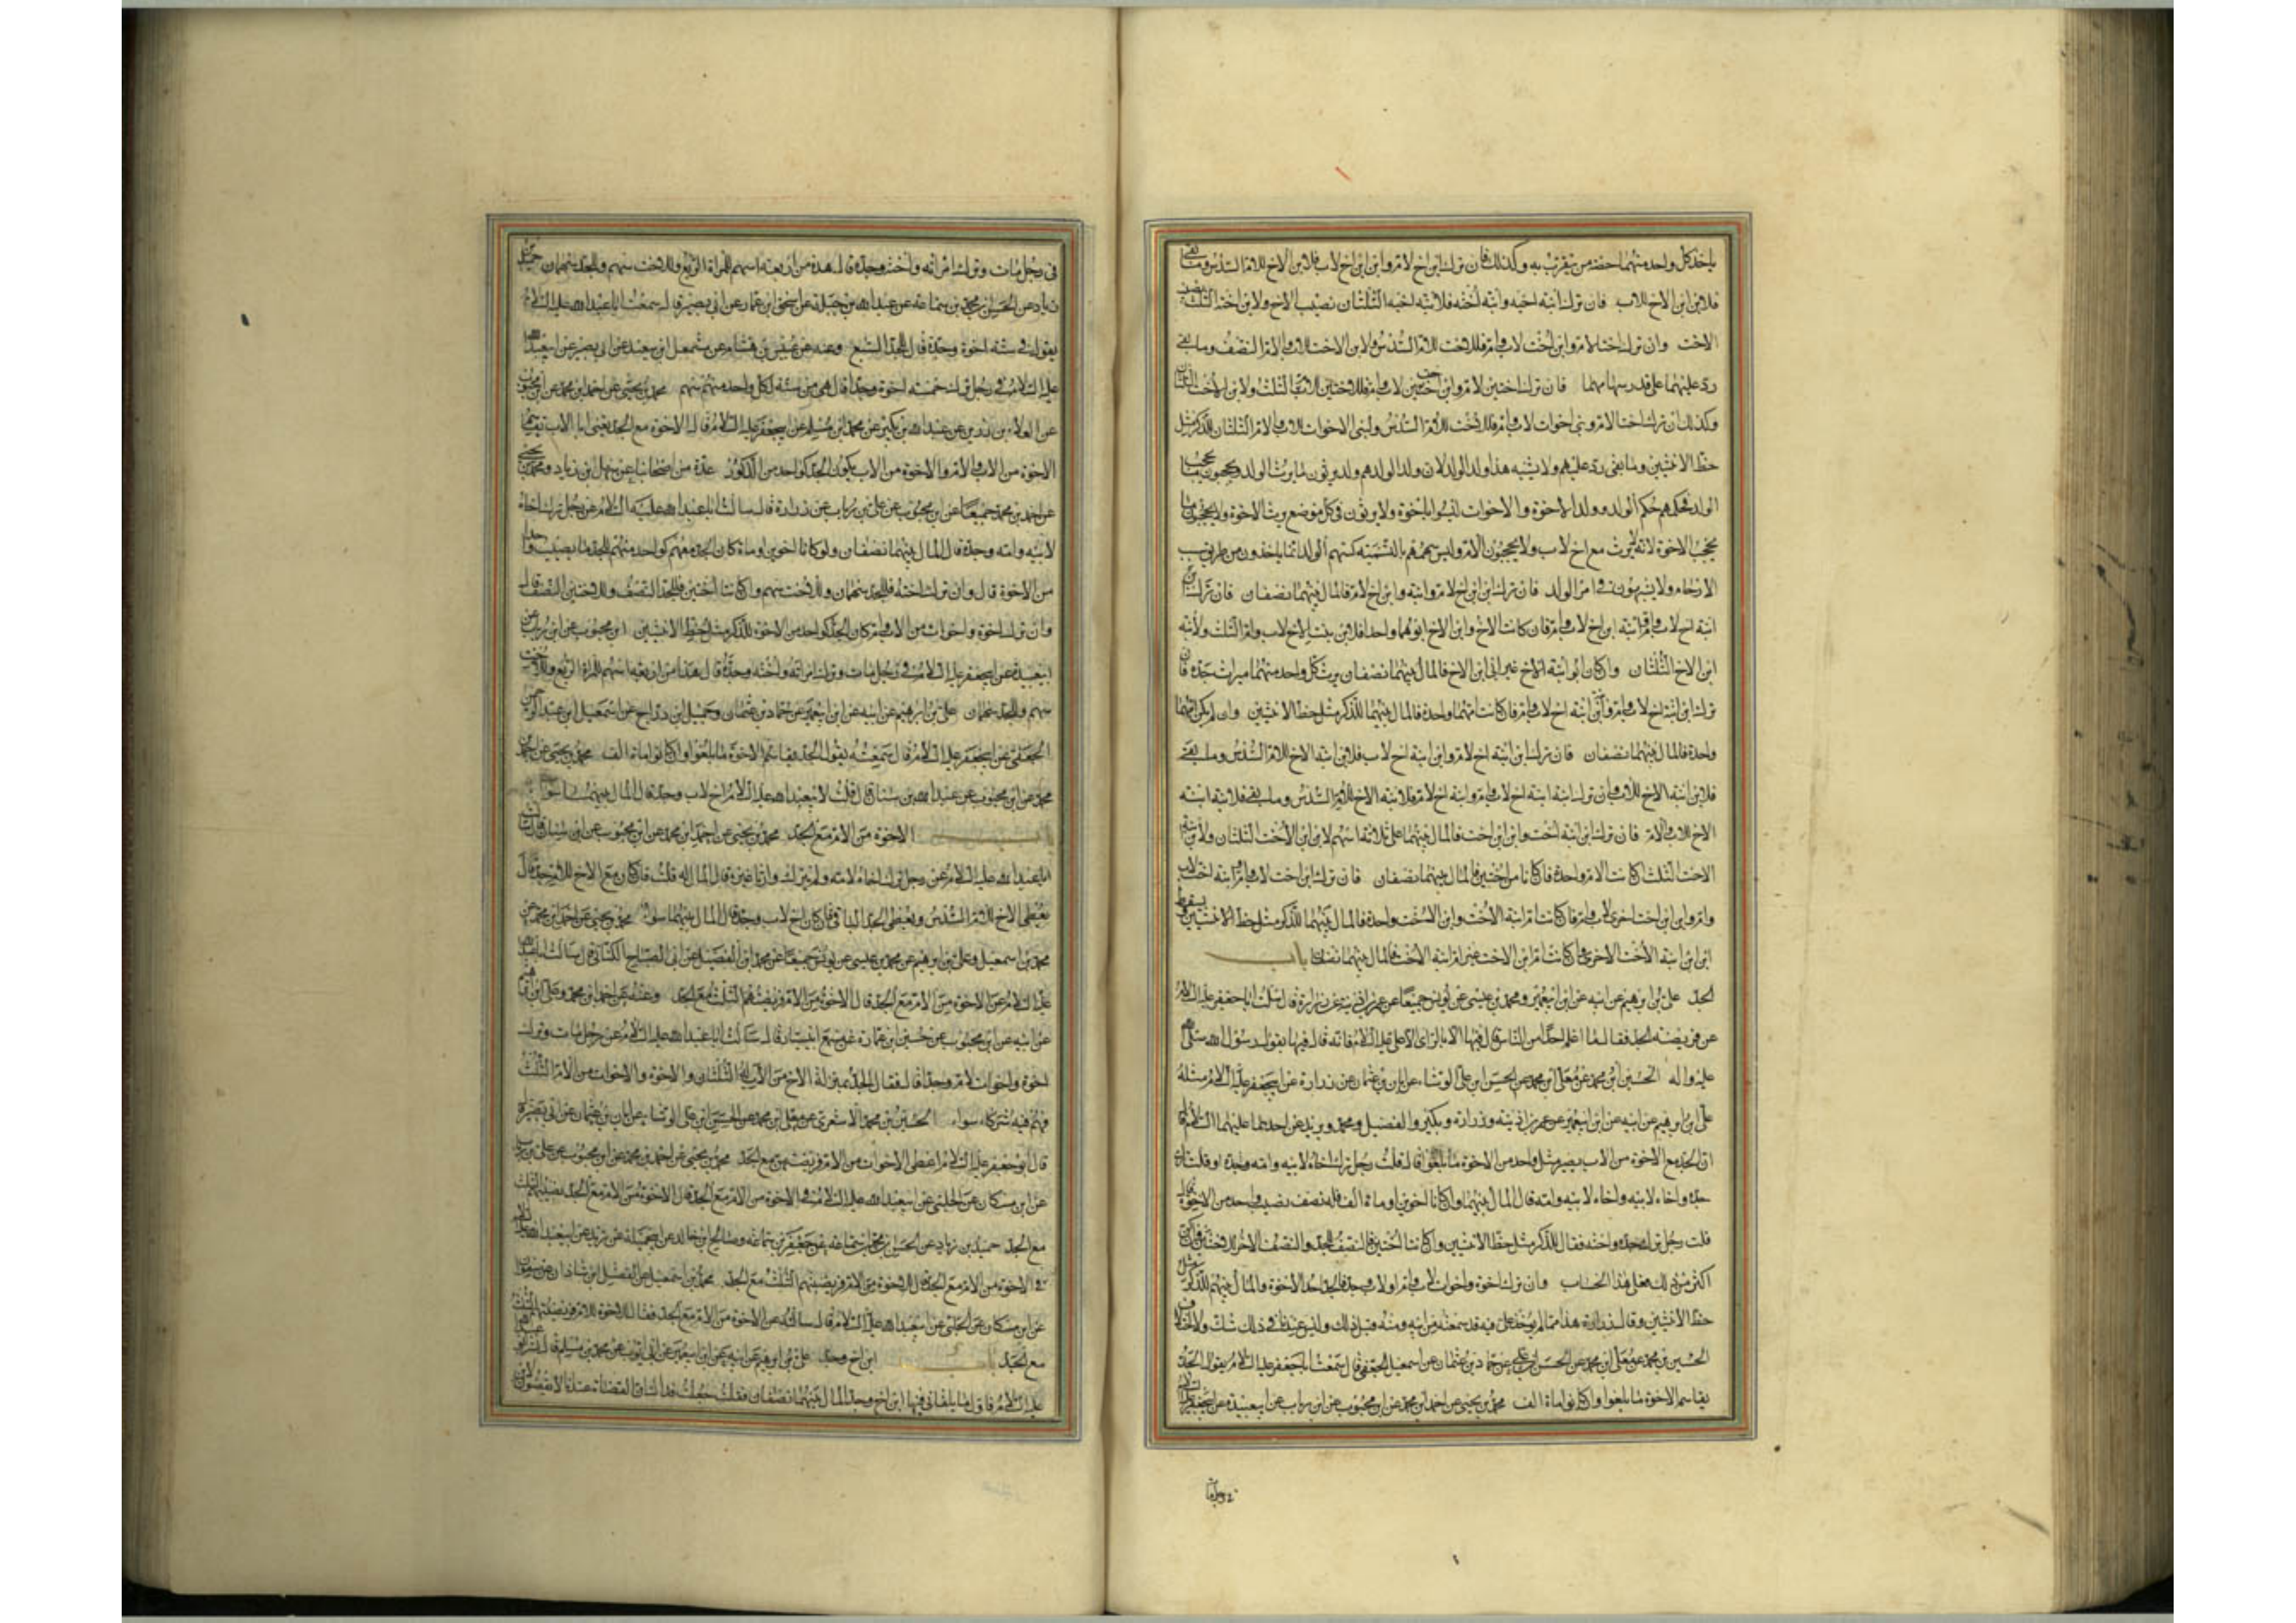 ياخذ كل واحد منهما حصة من يتقرب به وكذلك فان ترك ابن اخ لام وابن ابن اخ لاب فلابن الاخ للام السدس وما بقى
فلابن ابن الاخ للاب فان ترك ابنة اخيه وابنة اخته فلابنة اخيه الثلثان نصيب الاخ ولابن اخته الثلث نصيب
الاخت وان ترك اختا لام وابن اخت لاب وام فللاخت للام السدس ولابن الاخت للاب والام النصف وما بقى
رد عليهما على قدر سهامهما فان ترك اختين لام وابن اختين لاب وام فللاختين للام الثلث ولابن الاختين الثلثان
وكذلك ان ترك اختا لام وبنى اخوات لاب وام فللاخت للام السدس ولبنى الاخوات للاب والام الثلثان للذكر مثل
حظ الانثيين وما بقى رد عليهم ولا يشبه هذا ولد الولد لان ولد الولد هم ولد يرثون ما يرث الولد ويحجبون ما يحجب
الولد فحكمهم حكم الولد وولد الاخوة والاخوات ليسوا باخوة ولا يرثون فى كل موضع يرث الاخوة ولا يحجبون ما
يحجب الاخوة لانه لا يرث مع اخ لاب ولا يحجبون الام وليس سهمهم بالتسمية كسهم الولد انما ياخذون من طريق سبب
الارحام ولا يشبهون فى امر الولد فان ترك ابن ابن اخ لام وابنة وابن اخ لام فالمال بينهما نصفان فان ترك ابن
ابنة اخ لاب وام وابنة ابن اخ لاب وام فان كانت الاخ وابن الاخ ابوهما واحدا فلابن بنت الاخ لاب وام الثلث ولابنة
ابن الاخ الثلثان وان كان ابو ابنة الاخ غير ابى ابن الاخ فالمال بينهما نصفان يرث كل واحد منهما ميراث جده فان
ترك ابن ابنة اخ لاب وام وابنة ابنة اخ لاب وام فان كانت امهما واحدة فالمال بينهما للذكر مثل حظ الانثيين وان لم يكن امهما
واحدة فالمال بينهما نصفان فان ترك ابن ابنة اخ لام وابن ابنة اخ لاب فلابن ابنة الاخ للام السدس وما بقى
فلابن ابنة الاخ للاب فان ترك ابنة ابنة اخ لاب وام وابنة اخ لام فلابنة الاخ للام السدس وما بقى فلابنة ابنة
الاخ للاب والام فان ترك ابن ابنة اخت وابن ابن اخت فالمال بينهما على ثلاثة اسهم لابن ابن الاخت الثلثان ولابن ابنة
الاخت الثلث ان كانت الام واحدة فان كانا من اختين فالمال بينهما نصفان فان ترك ابن اخت لاب وام وابنة اخت لاب
وام وابن ابن اخت اخرى لاب وام فان كانت ام ابنة الاخت وابن الاخت واحدة فالمال بينهما للذكر مثل حظ الانثيين ويسقط
ابن ابن ابنة الاخت الاخرى وان كانت ام ابن الاخت غير ام ابنة الاخت فالمال بينهما نصفان باب
الجد على بن ابرهيم عن ابيه عن ابن ابى عمير ومحمد بن عيسى عن يونس جميعا عن عمر بن اذينة عن زرارة قال سالت ابا جعفر عليه السلام
عن فريضة الجد فقال ما اعلم احدا من الناس قال فيها الا بالراى الا على عليه السلام فانه قال فيها بقول رسول الله صلى الله
عليه واله الحسين بن محمد عن معلى بن محمد عن الحسن بن على الوشاء عن ابان بن عثمان عن زرارة عن ابى جعفر عليه السلام مثله
على بن ابرهيم عن ابيه عن ابن ابى عمير عن عمر بن اذينة عن زرارة وبكير والفضيل ومحمد وبريد عن احدهما عليهما السلام قال
ان الجد مع الاخوة من الاب يصير مثل واحد من الاخوة ما بلغوا قال قلت رجل ترك اخاه لابيه وامه وجده او قلت ترك
جده واخاه لابيه واخاه لابيه وامه قال المال بينهما وان كانا اخوين او مائة الف فله نصف نصيب واحد من الاخوة قال
قلت رجل ترك جده واخته فقال للذكر مثل حظ الانثيين وان كانتا اختين فالنصف للجد والنصف الاخر للاختين وان كن
اكثر من ذلك فعلى هذا الحساب وان ترك اخوة واخوات لاب وام او لاب وجد فالجد احد الاخوة والمال بينهم للذكر مثل
حظ الانثيين وقال زرارة هذا مما لم يؤخذ على فيه قد سمعته من ابيه ومنه قبل ذلك وليس عندنا فى ذلك شك ولا اختلاف
الحسين بن محمد عن معلى بن محمد عن الحسن بن على عن حماد بن عثمان عن اسمعيل الجعفى قال سمعت ابا جعفر عليه السلام يقول الجد
يقاسم الاخوة ما بلغوا وان كانوا مائة الف محمد بن يحيى عن احمد بن محمد عن ابن محبوب عن ابن رياب عن ابى عبيدة عن ابى جعفر عليه السلام
فى رجل مات
فى رجل مات وترك امراته واخته وجده قال هذه من اربعة اسهم للمراة الربع وللاخت سهم وللجد سهمان حميد بن
زياد عن الحسن بن محمد بن سماعة عن عبدالله بن جبلة عن اسحق بن عمار عن ابى بصير قال سمعت ابا عبدالله عليه السلام
يقول فى ستة اخوة وجد قال للجد السبع وعنه عن عبيس بن هشام عن مشمعل ابن سعد عن ابى بصير عن ابى عبدالله
عليه السلام فى رجل ترك خمسة اخوة وجدا قال هى من ستة لكل واحد منهم سهم محمد بن يحيى عن احمد بن محمد عن ابن محبوب
عن العلاء بن رزين عن عبدالله بن بكير عن محمد بن مسلم عن ابى جعفر عليه السلام قال الاخوة مع الجد يعنى ابا الاب يقاسم
الاخوة من الاب والام والاخوة من الاب يكون الجد كواحد من الذكور عدة من اصحابنا عن سهل بن زياد ومحمد بن يحيى
عن احمد بن محمد جميعا عن ابن محبوب عن على بن رياب عن زرارة قال سالت ابا عبدالله عليه السلام عن رجل ترك اخاه
لابيه وامه وجده قال المال بينهما نصفان ولو كانا اخوين او مائة كان الجد معهم كواحد منهم للجد ما يصيب واحدا
من الاخوة قال وان ترك اخته فللجد سهمان وللاخت سهم وان كانتا اختين فللجد النصف وللاختين النصف قال
وان ترك اخوة واخوات من الاب والام كان الجد كواحد من الاخوة للذكر مثل حظ الانثيين ابن محبوب عن ابن رياب عن
ابى عبيدة عن ابى جعفر عليه السلام فى رجل مات وترك امراته واخته وجده قال هذا من اربعة اسهم للمراة الربع وللاخت
سهم وللجد سهمان على بن ابرهيم عن ابيه عن ابن ابى عمير عن حماد بن عثمان وجميل بن دراج عن اسمعيل بن عبدالرحمن
الجعفى عن ابى جعفر عليه السلام قال سمعته يقول الجد يقاسم الاخوة ما بلغوا وان كانوا مائة الف محمد بن يحيى عن احمد بن
محمد عن ابن محبوب عن عبدالله بن سنان قال قلت لابى عبدالله عليه السلام اخ لاب وجد قال المال بينهما سواء
باب الاخوة من الام مع الجد محمد بن يحيى عن احمد بن محمد عن ابن محبوب عن ابن سنان قال سالت
ابا عبدالله عليه السلام عن رجل ترك اخاه لامه ولم يترك وارثا غيره قال المال له قلت فان كان مع الاخ للام جد قال
يعطى الاخ للام السدس ويعطى الجد الباقى قال فان كان اخ لاب وجد قال المال بينهما سواء محمد بن يحيى عن احمد بن محمد عن
محمد بن اسمعيل وعلى بن ابرهيم عن محمد بن عيسى عن يونس جميعا عن محمد بن الفضيل عن ابى الصباح الكنانى قال سالت ابا عبدالله
عليه السلام عن الاخوة من الام مع الجد قال الاخوة من الام فريضتهم الثلث مع الجد وعنه عن احمد بن محمد وعلى بن ابرهيم
عن ابيه عن ابن محبوب عن حسين بن عمارة عن مسمع ابى سيار قال سالت ابا عبدالله عليه السلام عن رجل مات وترك
اخوة واخوات لام وجدا قال فقال الجد بمنزلة الاخ من الاب له الثلثان والاخوة والاخوات من الام الثلث
فهم فيه شركاء سواء الحسين بن محمد الاشعرى عن معلى بن محمد عن الحسن بن على الوشاء عن ابان بن عثمان عن ابى بصير
قال قال ابو جعفر عليه السلام اعطى الاخوات من الام فريضتهن مع الجد محمد بن يحيى عن احمد بن محمد عن ابن محبوب عن على بن رياب
عن ابن مسكان عن الحلبى عن ابى عبدالله عليه السلام فى الاخوة من الام مع الجد قال الاخوة من الام مع الجد نصيبهم الثلث
مع الجد حميد بن زياد عن الحسن بن محمد بن سماعة عن جعفر بن سماعة وصالح بن خالد عن ابى جميلة عن زيد عن ابى عبدالله عليه السلام
فى الاخوة من الام مع الجد قال للاخوة من الام فريضتهم الثلث مع الجد محمد بن اسمعيل عن الفضل بن شاذان عن صفوان
عن ابن مسكان عن الحلبى عن ابى عبدالله عليه السلام قال سالته عن الاخوة من الام مع الجد فقال للاخوة للام فريضتهم الثلث
مع الجد باب ابن اخ وجد على بن ابرهيم عن ابيه عن ابن ابى عمير عن ابى ايوب عن محمد بن مسلم قال نشر ابو جعفر
عليه السلام فاول ما يلقانى فيها ابن اخ وجد المال بينهما نصفان فقلت جعلت فداك ان القضاة عندنا لا يقضون لابن